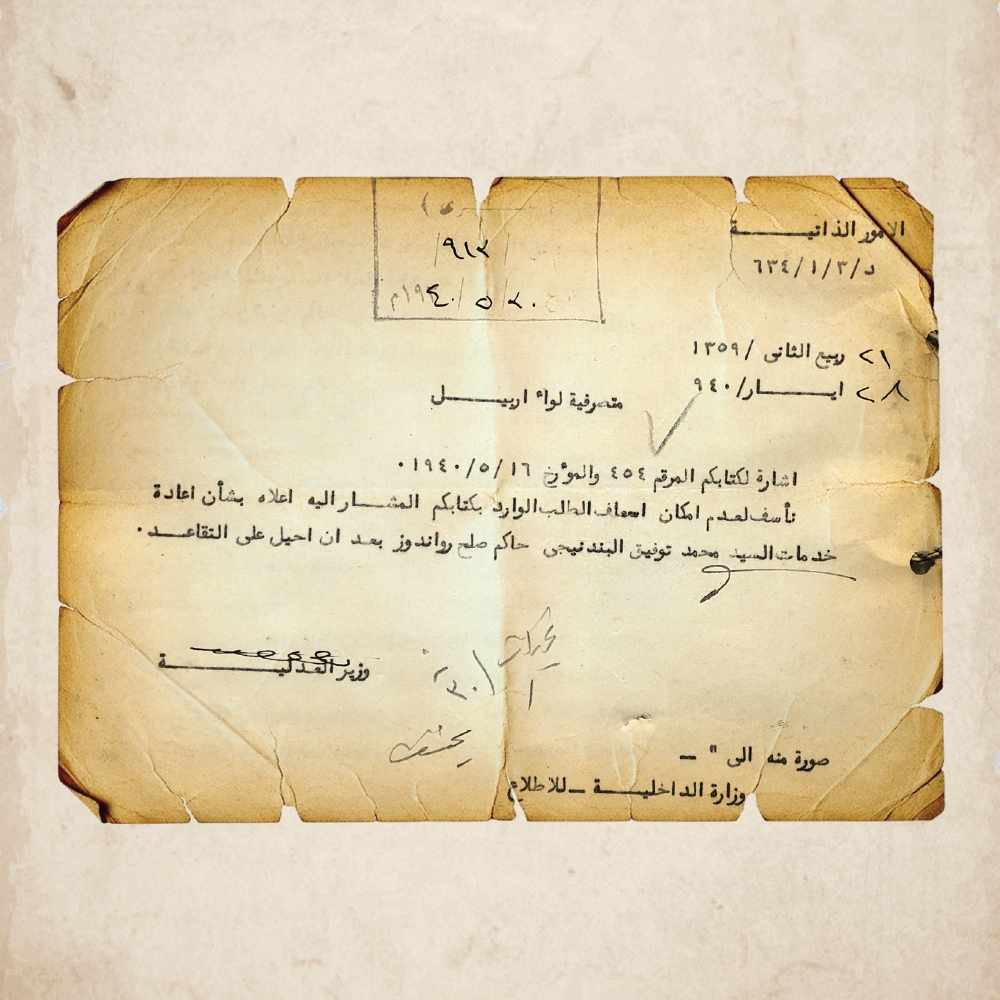 الامور الذاتيـــــة
د/٣/١/٦٣٤
/٩١٢/
٢٠/٥/١٩٤٠م
٢١ ربيع الثانى /١٣٥٩
٢٨ ايـــــار/٩٤٠
متصرفية لواء اربيـــل
اشارة لكتابكم المرقم ٤٥٤ والمؤرخ ١٩٤٠/٥/١٦.
نأسف لعدم امكان اسعاف الطلب الوارد بكتابكم المشـــار اليه اعلاه بشأن اعادة
خدمات السيد محمد توفيق البندنيجى حاكم صلح رواندوز بعد ان احيل على التقاعـــد.
وزير العدليـــــة
صورة منه الى " ــ
وزارة الداخليـــــة ــ للاطلاع